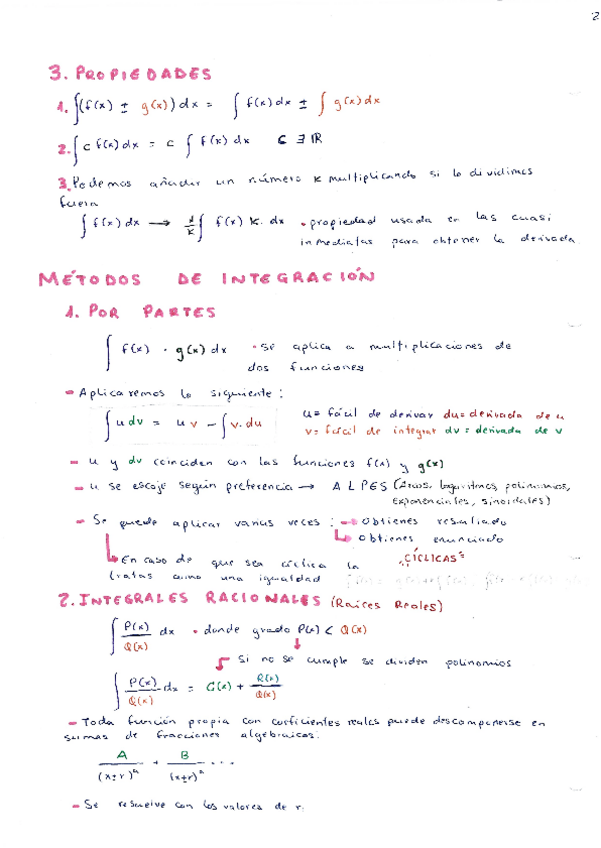 2
3. PROPIEDADES
1. ∫(f(x) ± g(x)) dx = ∫ f(x) dx ± ∫ g(x) dx
2. ∫ c f(x) dx = c ∫ f(x) dx   c ∃ ℝ
3. Podemos añadir un número K multiplicando si lo dividimos
fuera
∫ f(x) dx → 1/K ∫ f(x) K. dx • propiedad usada en las cuasi
inmediatas para obtener la derivada
MÉTODOS DE INTEGRACIÓN
1. POR PARTES
∫ f(x) · g(x) dx • se aplica a multiplicaciones de
dos funciones
- Aplicaremos lo siguiente:
∫ u dv = u v - ∫ v. du
u= fácil de derivar du= derivada de u
v= fácil de integrar dv = derivada de v
- u y dv coinciden con las funciones f(x) y g(x)
- u se escoje según preferencia → A L P E S (Arcos, logaritmos, polinomios,
exponenciales, sinoidales)
- Se puede aplicar varias veces: → obtienes resultado
↳ obtienes enunciado
↳ En caso de que sea cíclica la "CÍCLICAS"
tratas como una igualdad
2. INTEGRALES RACIONALES (Raíces Reales)
∫ P(x)/Q(x) dx • donde grado P(x) < Q(x)
Si no se cumple se dividen polinomios
∫ P(x)/Q(x) dx = C(x) + R(x)/Q(x)
- Toda función propia con coeficientes reales puede descomponerse en
sumas de fracciones algebraicas:
A/(x±r)ⁿ + B/(x±r)ⁿ ...
- Se resuelve con los valores de r.